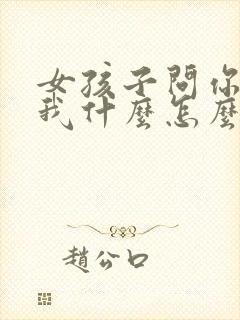 女孩子問你
我什麼怎麼
趙公口